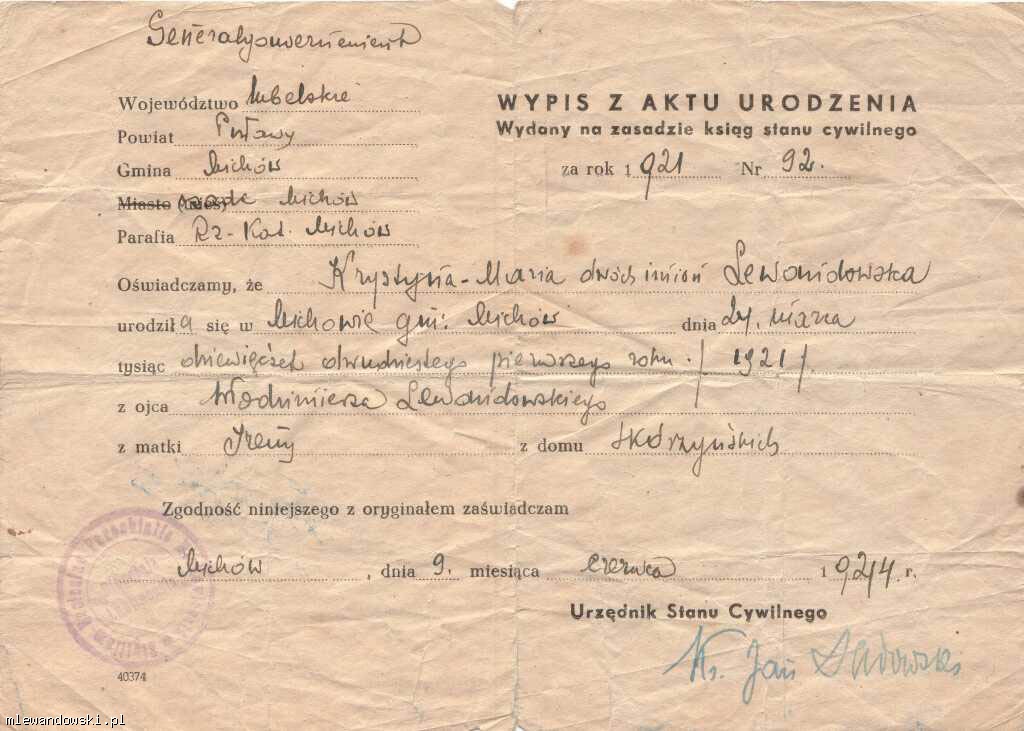 Generalgouvernement
Województwo lubelskie
Powiat Puławy
Gmina Michów
Miasto (wieś) osada Michów
Parafia Rz-Kat. Michów
WYPIS Z AKTU URODZENIA
Wydany na zasadzie ksiąg stanu cywilnego
za rok 1921 Nr 92.
Oświadczamy, że Krystyna-Maria dwóch imion Lewandowska
urodziła się w Michowie gm: Michów dnia 24, marca
tysiąc dziewięćset dwudziestego pierwszego roku. /1921/.
z ojca Włodzimierza Lewandowskiego
z matki Ireny z domu Skórzyńskich
Zgodność niniejszego z oryginałem zaświadczam
Michów, dnia 9. miesiąca czerwca 1924 r.
Urzędnik Stanu Cywilnego
Ks. Jan Sadowski
40374
mlewandowski.pl